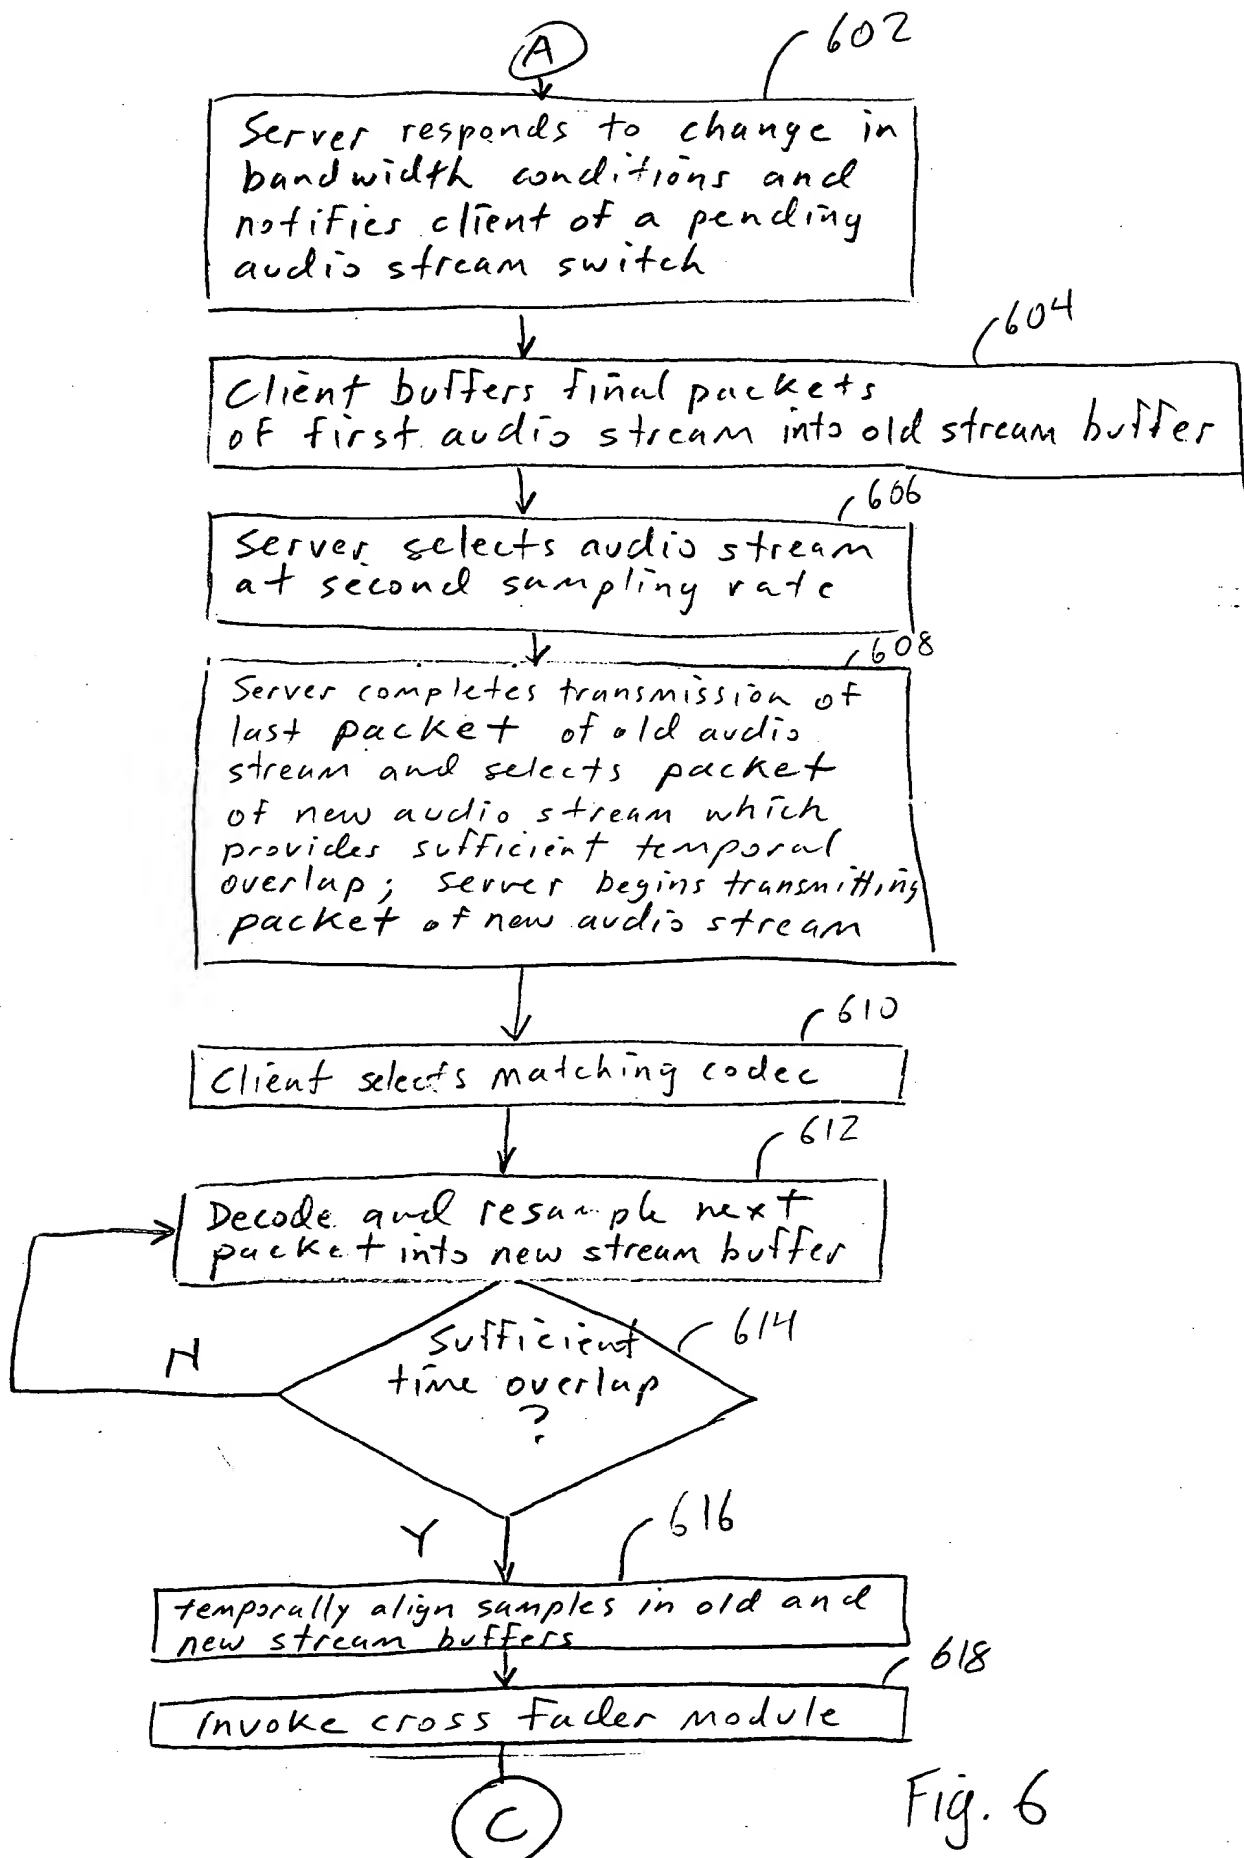 A
602
Server responds to change in
bandwidth conditions and
notifies client of a pending
audio stream switch
604
Client buffers final packets
of first audio stream into old stream buffer
606
Server selects audio stream
at second sampling rate
608
Server completes transmission of
last packet of old audio
stream and selects packet
of new audio stream which
provides sufficient temporal
overlap; server begins transmitting
packet of new audio stream
610
Client selects matching codec
612
Decode and resample next
packet into new stream buffer
614
Sufficient
time overlap
?
N
Y
616
temporally align samples in old and
new stream buffers
618
Invoke cross fader module
C
Fig. 6